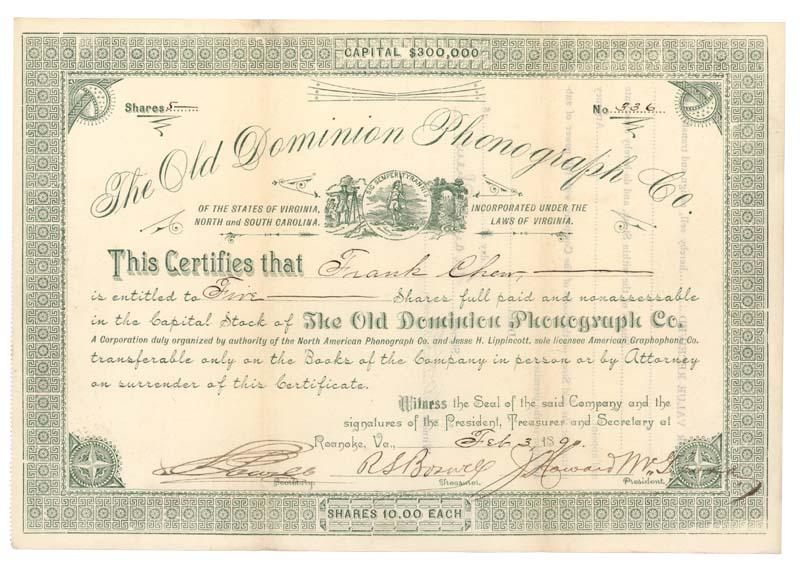 CAPITAL $300,000
Shares 5
No 336
The Old Dominion Phonograph Co.
OF THE STATES OF VIRGINIA,
NORTH and SOUTH CAROLINA.
SIC SEMPER TYRANNIS
INCORPORATED UNDER THE
LAWS OF VIRGINIA.
This Certifies that Frank Chew,
is entitled to Five Shares full paid and nonassessable
in the Capital Stock of The Old Dominion Phonograph Co.
A Corporation duly organized by authority of the North American Phonograph Co. and Jesse H. Lippincott, sole licensee American Graphophone Co.
transferable only on the Books of the Company in person or by Attorney
on surrender of this Certificate.
Witness the Seal of the said Company and the
signatures of the President, Treasurer and Secretary at
Roanoke, Va., Feb 3, 1890.
RS Boswell J Howard
Secretary. Treasurer. President.
SHARES 10.00 EACH